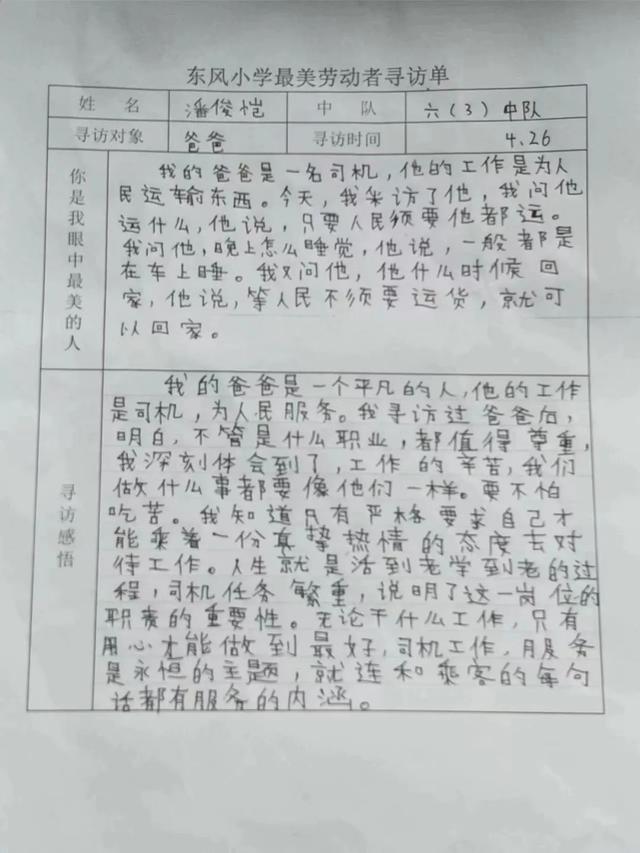 东风小学最美劳动者寻访单
姓 名 潘俊恺 中 队 六（3）中队
寻访对象 爸爸 寻访时间 4.26
你是我眼中最美的人
我的爸爸是一名司机，他的工作是为人
民运输东西。今天，我采访了他，我问他
运什么，他说，只要人民须要他都运。
我问他，晚上怎么睡觉，他说，一般都是
在车上睡。我又问他，他什么时候回
家，他说，等人民不须要运货，就可
以回家。
寻访感悟
我的爸爸是一个平凡的人，他的工作
是司机，为人民服务。我寻访过爸爸后，
明白，不管是什么职业，都值得尊重，
我深刻体会到了，工作的辛苦，我们
做什么事都要像他们一样。要不怕
吃苦。我知道只有严格要求自己才
能乘着一份真挚热情的态度去对
待工作。人生就是活到老学到老的过
程，司机任务繁重，说明了这一岗位的
职责的重要性。无论干什么工作，只有
用心才能做到最好，司机工作，服务
是永恒的主题，就连和乘客的每句
话都有服务的内涵。